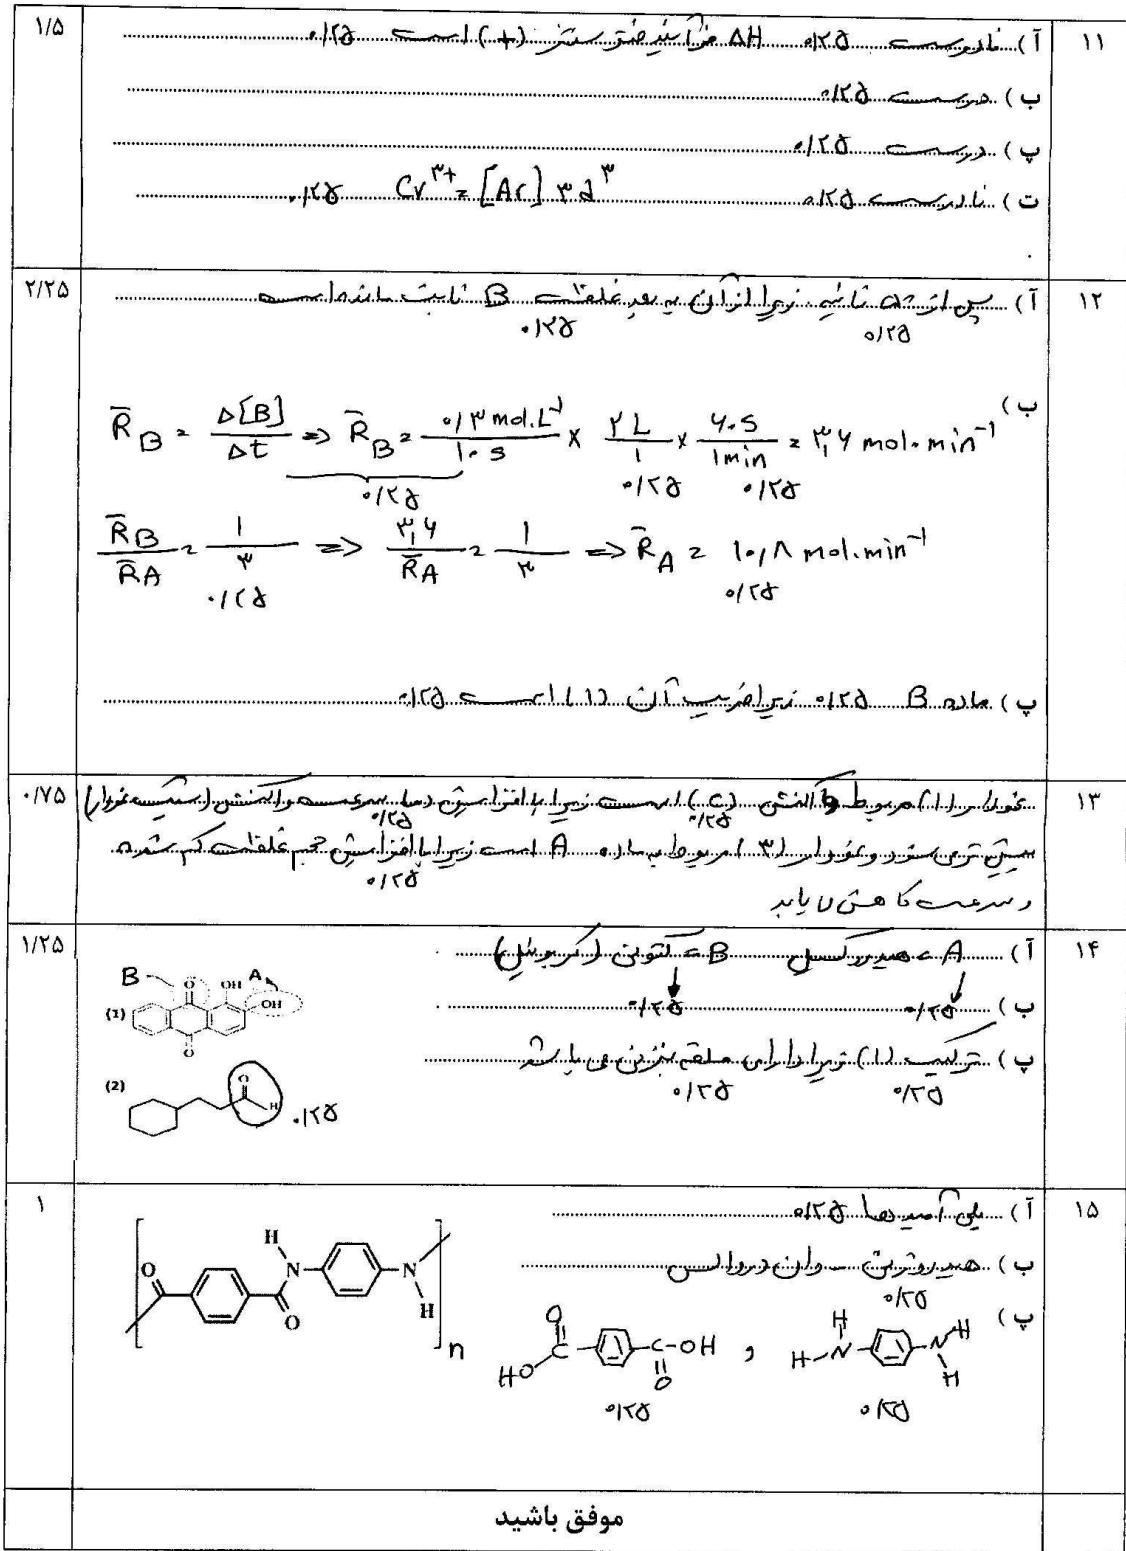 ۱۱ آ) نادرست ۰/۲۵ ΔH فرآیند فتوسنتز (+) است ۰/۲۵ ۱/۵
ب) درست ۰/۲۵
پ) درست ۰/۲۵
ت) نادرست ۰/۲۵ Cr³⁺ = [Ar] ۳d³ ۰/۲۵
۱۲ آ) پس از ۵۰ ثانیه زیرا از آن به بعد غلظت B ثابت مانده است ۲/۲۵
۰/۲۵ ۰/۲۵
ب) R̄B = Δ[B]/Δt ⇒ R̄B = ۰/۳ mol.L⁻¹/۱۰ s × ۲ L/۱ × ۶۰ s/۱ min = ۳,۶ mol.min⁻¹
۰/۲۵ ۰/۲۵ ۰/۲۵
R̄B/R̄A = ۱/۳ ⇒ ۳,۶/R̄A = ۱/۳ ⇒ R̄A = ۱۰,۸ mol.min⁻¹
۰/۲۵ ۰/۲۵
پ) ماده B ۰/۲۵ زیرا ضریب آن (۱) است ۰/۲۵
۱۳ نمودار (۱) مربوط واکنش (C) است زیرا با افزایش دما سرعت واکنش (شیب نمودار) ۰/۷۵
۰/۲۵ ۰/۲۵
بیش تر می شود و نمودار (۳) مربوط به ماده A است زیرا با افزایش حجم غلظت کم شده
۰/۲۵
و سرعت کاهش می یابد
۱۴ آ) A ← هیدروکسیل B ← کتونی (کربونیل) ۱/۲۵
ب) ۰/۲۵ ۰/۲۵
پ) ترکیب (۱) زیرا دارای حلقه بنزنی می باشد
۰/۲۵ ۰/۲۵
B O OH A OH
(1)
O
(2) O H ۰/۲۵
۱۵ آ) پلی آمیدها ۰/۲۵ ۱
ب) هیدروژنی – وان دروالسی
۰/۲۵
پ) H–N–H N–H H و HO–C=O C–OH O
۰/۲۵ ۰/۲۵
O H N O N H n
موفق باشید